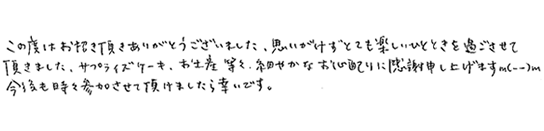 この度はお招き頂きありがとうございました、思いがけずとても楽しいひとときを過ごさせて
頂きました、サプライズケーキ、お土産 等々、細やかなお心配りに感謝申し上げますm(--)m
今後も時々参加させて頂けましたら幸いです。